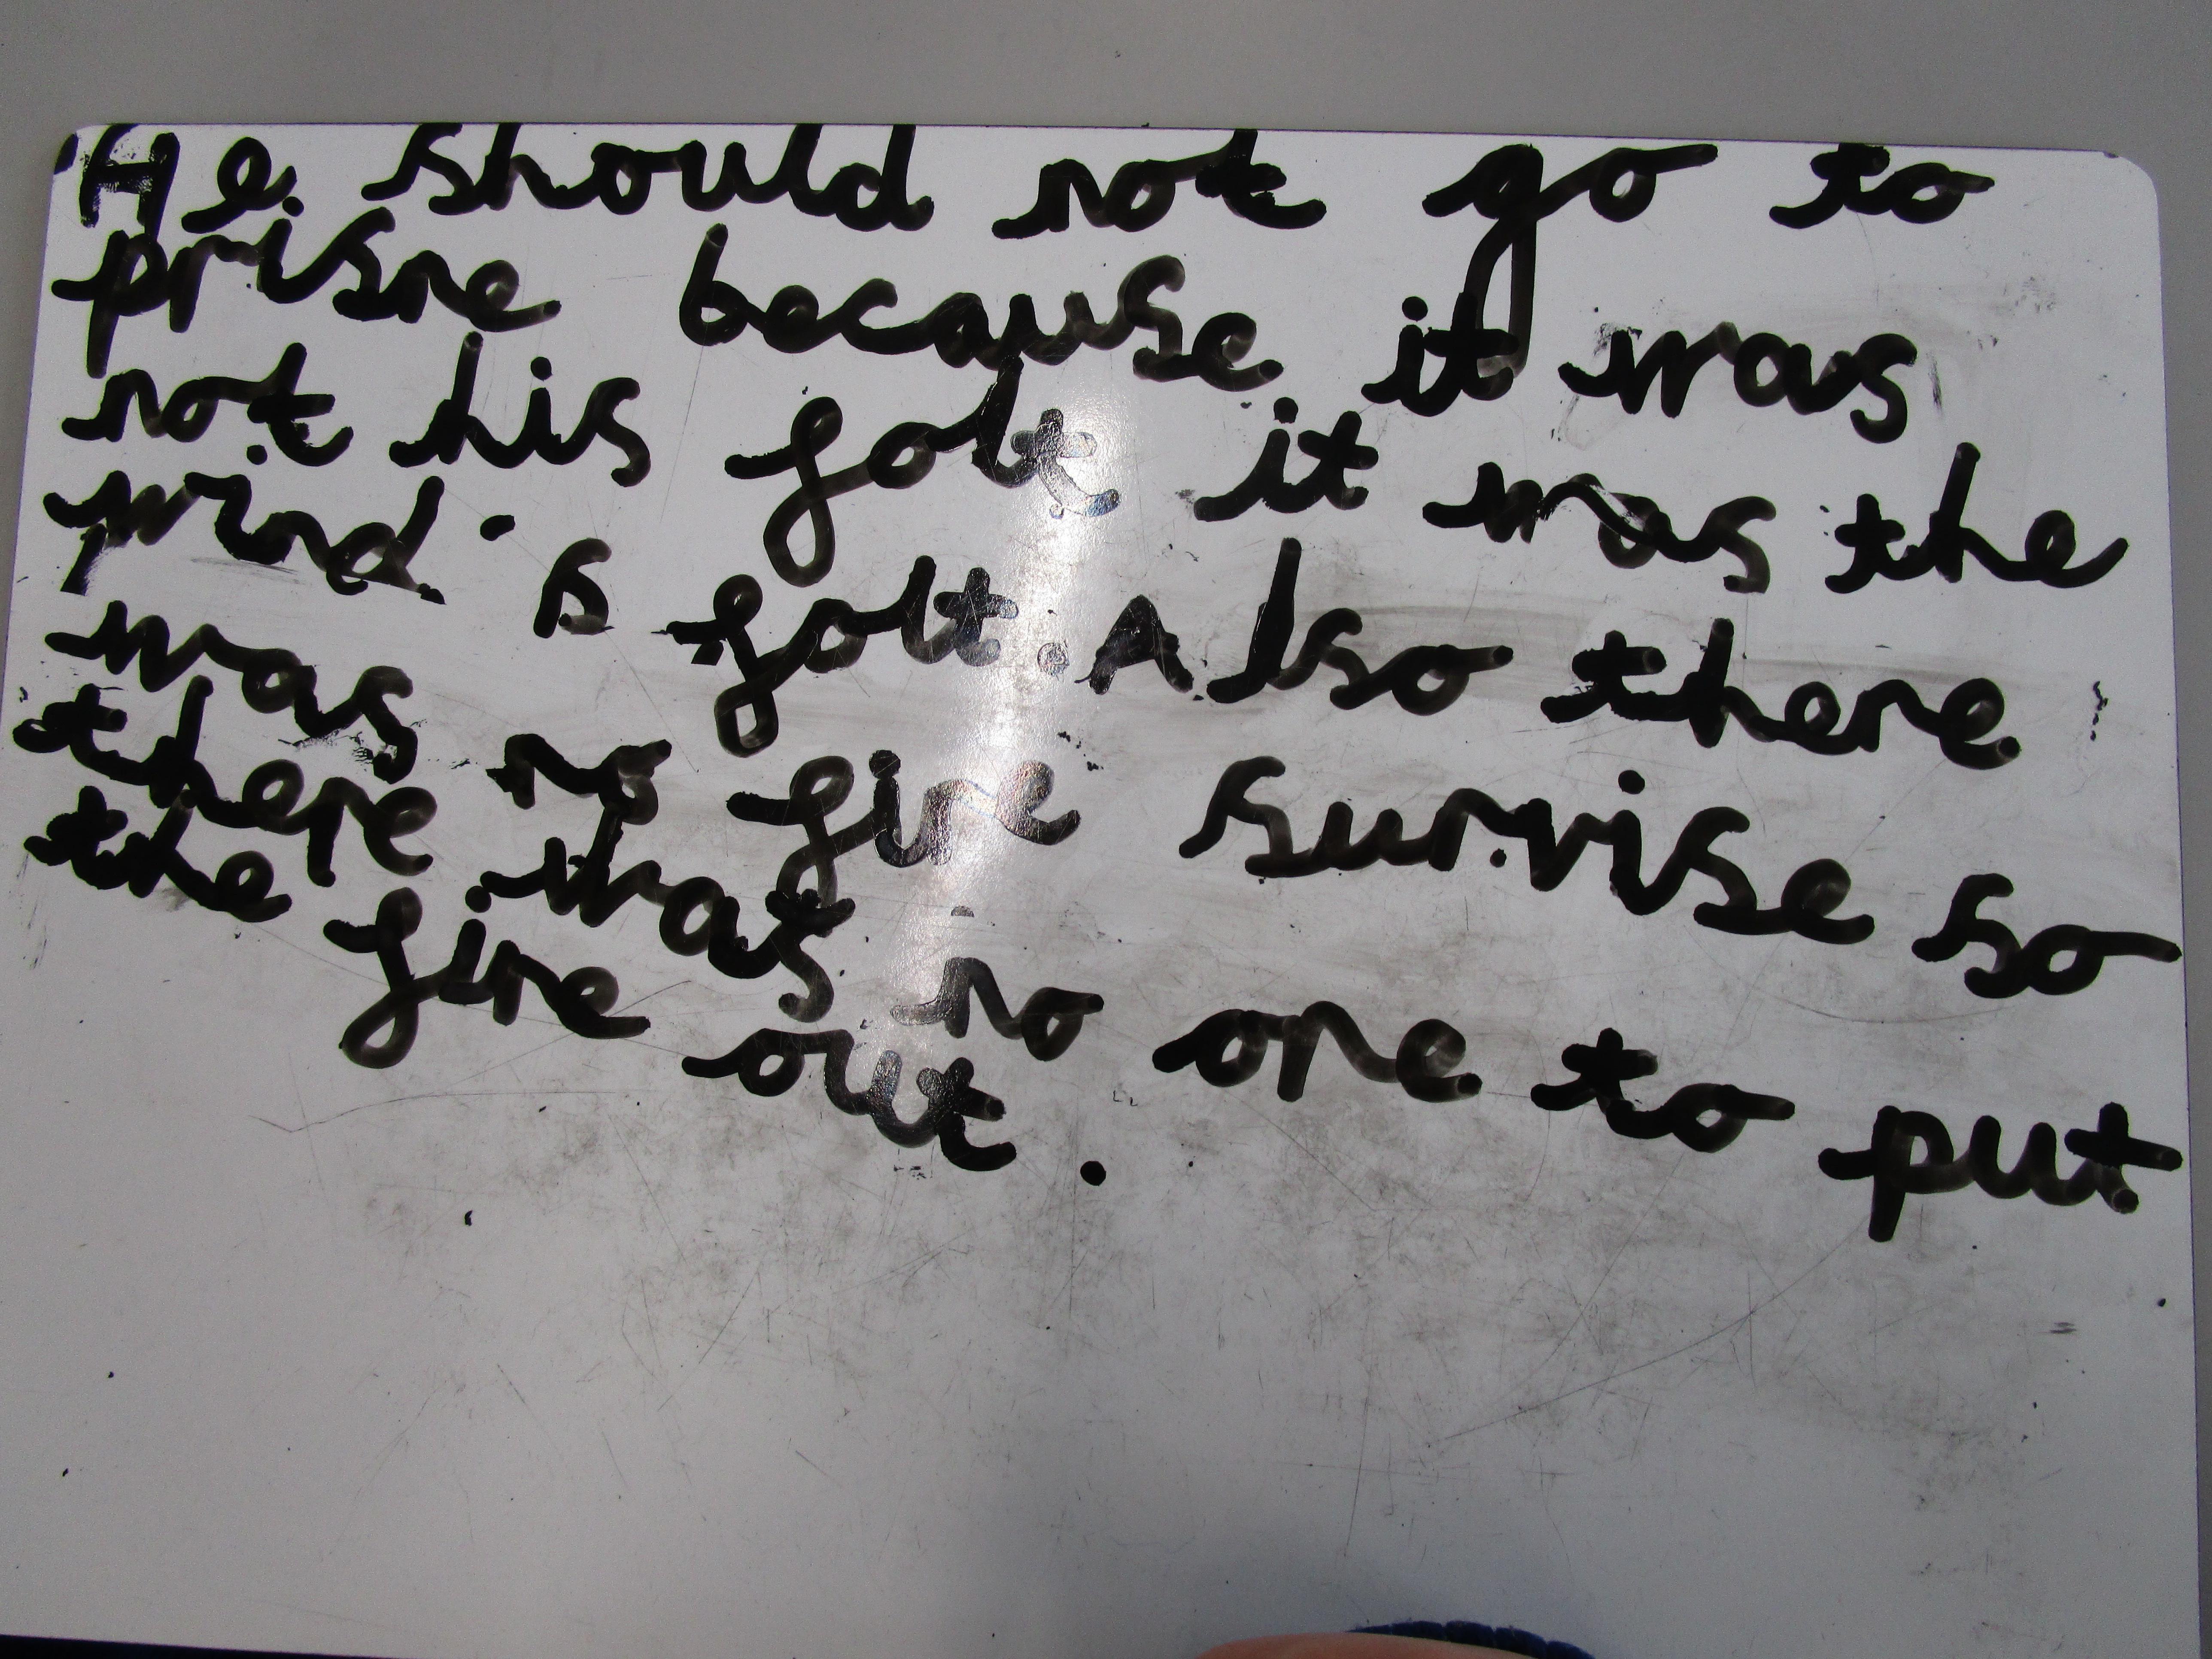 He should not go to
prisne because it was
not his folt it was the
wind's folt. Also there
was no fire survise so
there was no one to put
the fire out.